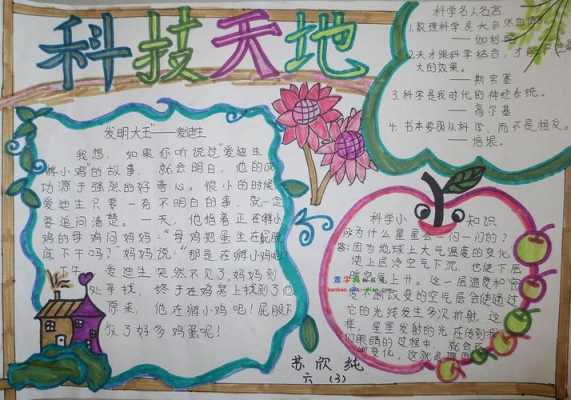 科技天地
发明大王——爱迪生
我想，如果你听说过“爱迪生
孵小鸡”的故事，就会明白，他的成
功源于强烈的好奇心。很小的时候
爱迪生只要一有不明白的事，就一定
要追问清楚。一天，他指着正在孵小
鸡的母鸡问妈妈：“母鸡把蛋坐在屁股
底下干吗？”妈妈说：“那是在孵小鸡呢
下午，爱迪生突然不见了，妈妈到
处寻找，终于在鸡窝上找到了他
原来，他在孵小鸡吧！屁股下
放了好多鸡蛋呢！
苏欣纯
六（3）
科学名人名言
1.数理科学是大自
——伽利略
2.天才跟科学结合，才能
大的效果。
——斯宾塞
3.科学是我时代的神经系统。
——高尔基
4.书本要跟从科学，而不是
——培根。
科学小知识
为什么星星会一闪一闪的？
答：因为地球上大气温度的变化
使上层冷空气下沉，也使下层
上升。这一层温度和密
度不断改变的空气层会使通过
它的光线发生多次折射，这
样，星星发射的光在传到
们眼睛的过程中，就会
变化，这就是